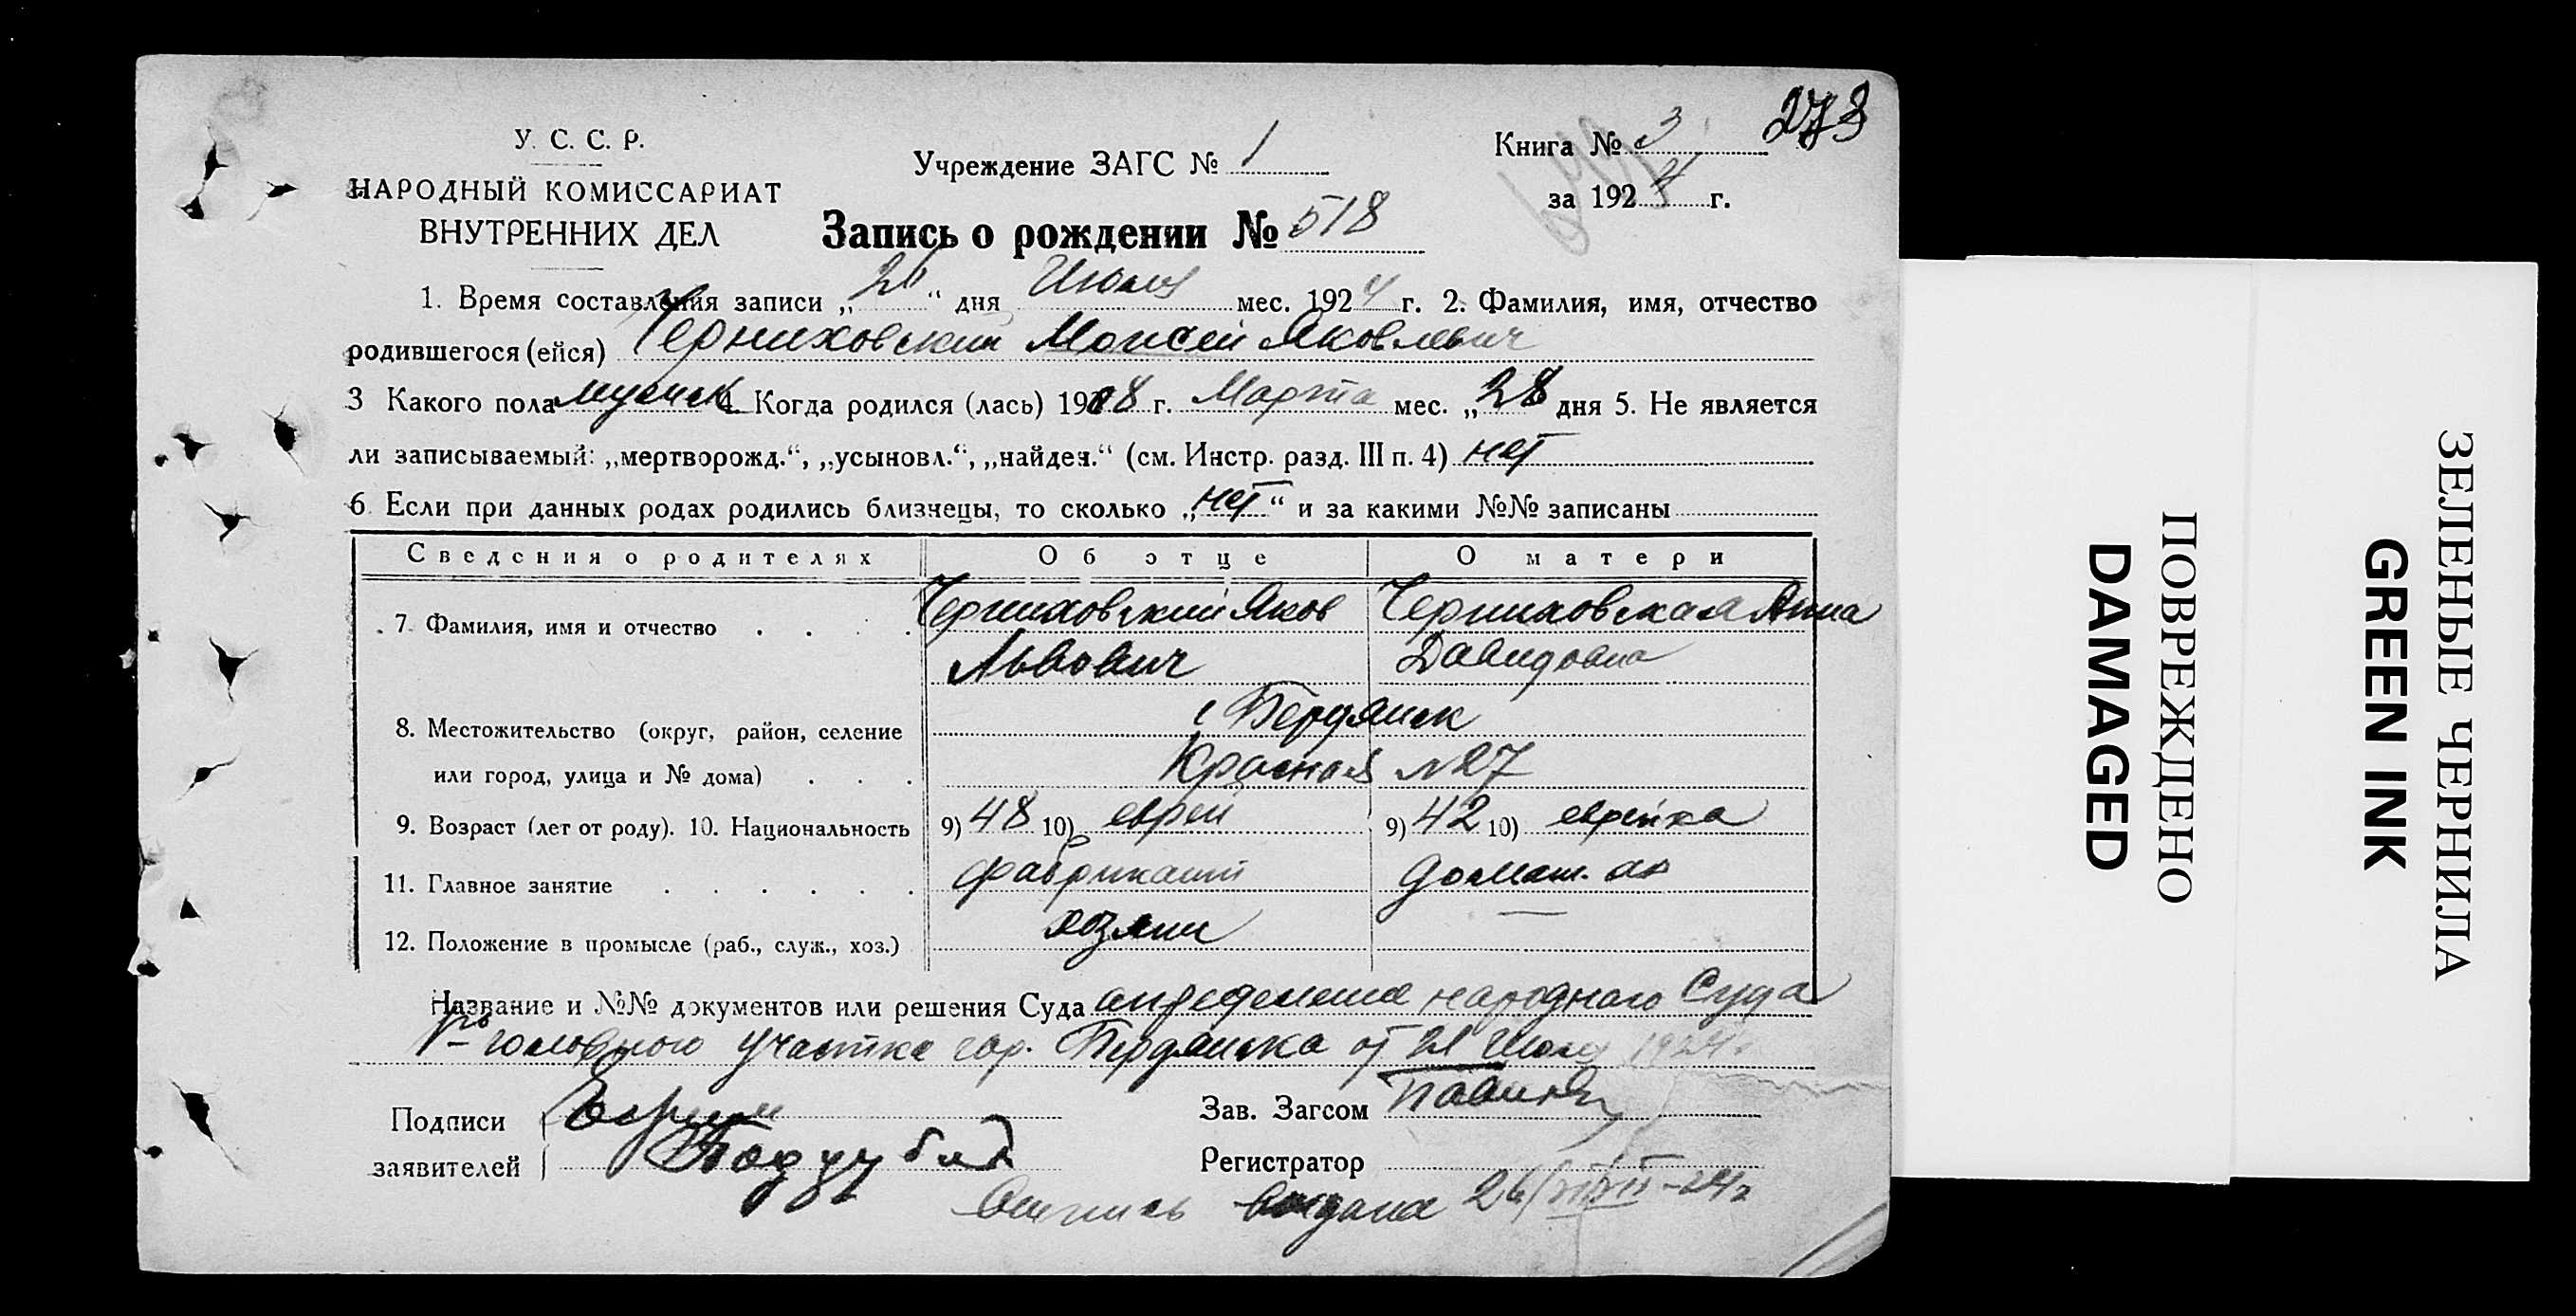 278
У. С. С. Р.
НАРОДНЫЙ КОМИССАРИАТ
ВНУТРЕННИХ ДЕЛ
Учреждение ЗАГС № 1
Книга № 3
за 1924 г.
Запись о рождении № 518
1. Время составления записи „26“ дня Июля мес. 1924 г. 2. Фамилия, имя, отчество
родившегося (ейся) Черниховский Моисей Яковлевич
3 Какого пола мужск 4. Когда родился (лась) 1908 г. Марта мес. „28 дня 5. Не является
ли записываемый: „мертворожд.“, „усыновл.“, „найден.“ (см. Инстр. разд. III п. 4) нет
6 Если при данных родах родились близнецы, то сколько „нет“ и за какими №№ записаны
Сведения о родителях Об отце О матери
7. Фамилия, имя и отчество Черниховский Яков Черниховская Анна
Львович Давидовна
8. Местожительство (округ, район, селение г Бердянск
или город, улица и № дома) Красная №27
9. Возраст (лет от роду). 10. Национальность 9) 48 10) еврей 9) 42 10) еврейка
11. Главное занятие фабрикант домаш. ая
12. Положение в промысле (раб., служ., хоз.) хозяин —
Название и №№ документов или решения Суда определение народного Суда
1го головного участка гор. Бердянска от 21 Июля 1924г.
Подписи
заявителей
Зав. Загсом
Регистратор
выдана 26/VII-24г
ПОВРЕЖДЕНО
DAMAGED
ЗЕЛЕНЫЕ ЧЕРНИЛА
GREEN INK